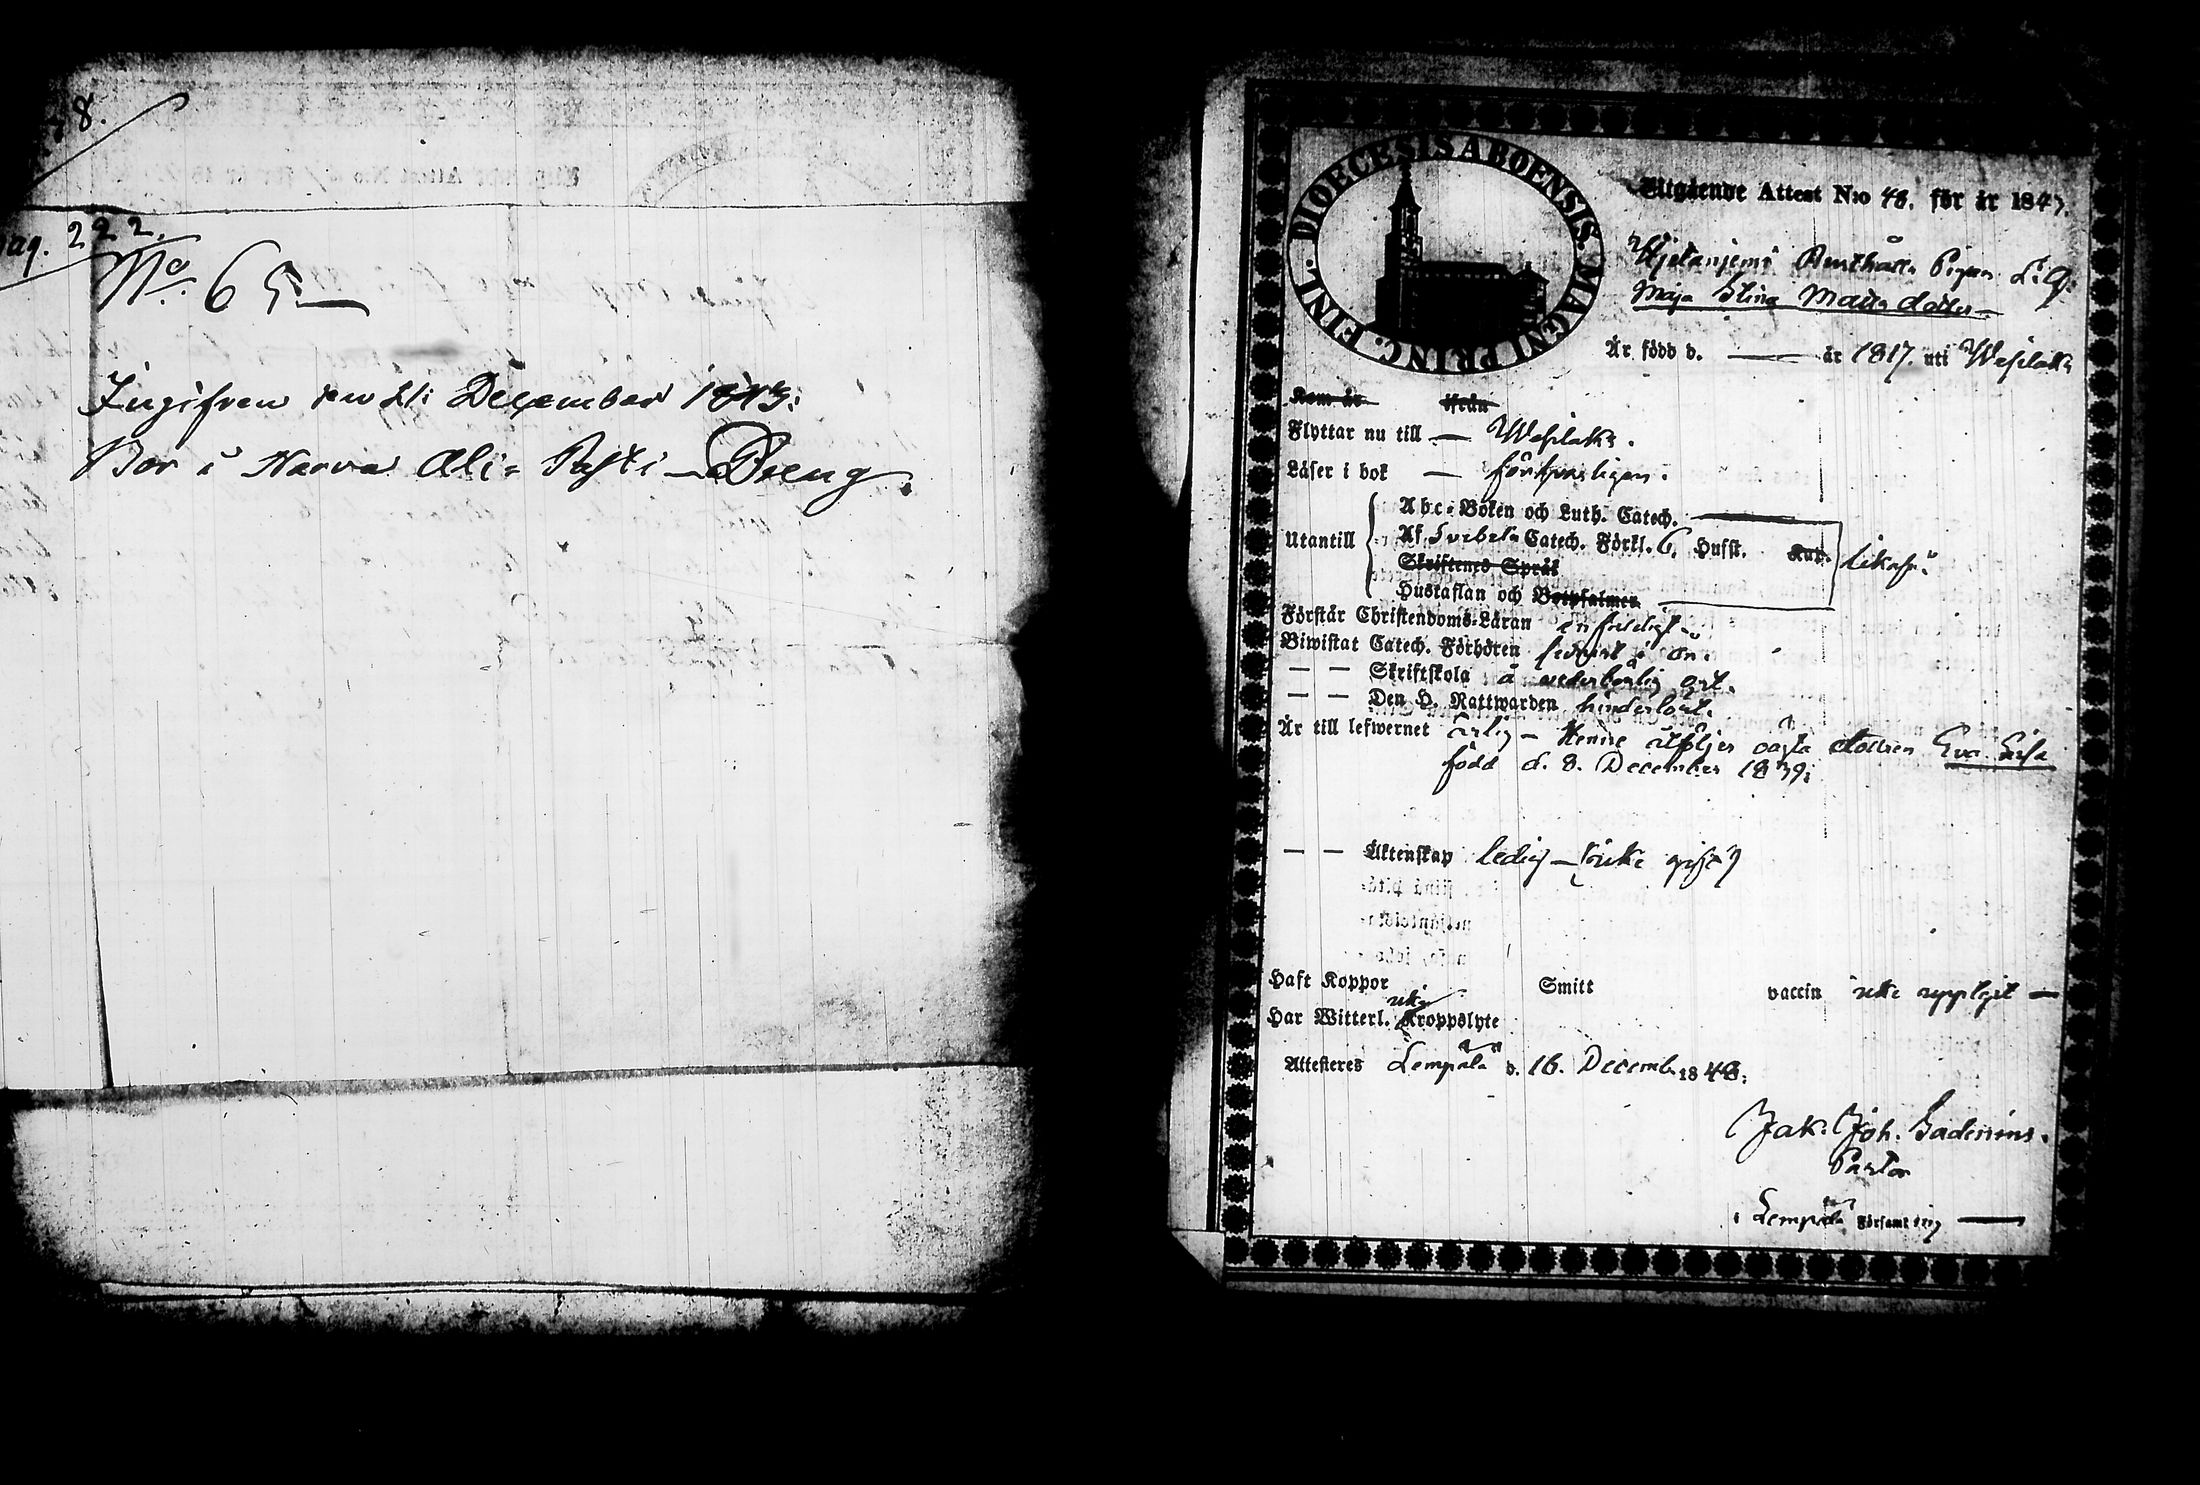 8.
pag. 222.
No. 65
Ingifven den 21: December 1843:
Bor i Narva Ali-Pasti Dreng.
DIOECESIS ABOENSIS. MAGNI PRINC. FINL.
Utgående Attest N:o 48. för år 1843.
Pigan
Maja Stina Matts dotter
Är född d. — år 1817. uti Wesilaks
Kom år ifrån
Flyttar nu till — Wesilaks.
Läser i bok — försvarligen.
Utantill
Abc-Boken och Luth. Catech.
Af Svebelii Catech. Förkl. 6, Husst. likaså.
Skriftenes Språk
Hustaflan och Botpsalmer
Förstår Christendoms-Läran enfaldigt
Biwistat Catech. Förhören
— — Skriftskola å vederbörlig ort.
— — Den H. Nattwarden hinderlöst.
Är till lefwernet ärlig — Henne åtföljer oägta dottren Eva Lisa
född d. 8. December 1839;
— — Äktenskap ledig — (icke gift)
Haft Koppor Smitt vaccin icke uppteget —
Har Witterl. icke Kroppslyte
Attesteres Lempälä d. 16. Decemb. 1843:
Jak. Joh. Gadenius.
Pastor
i Lempälä Församling